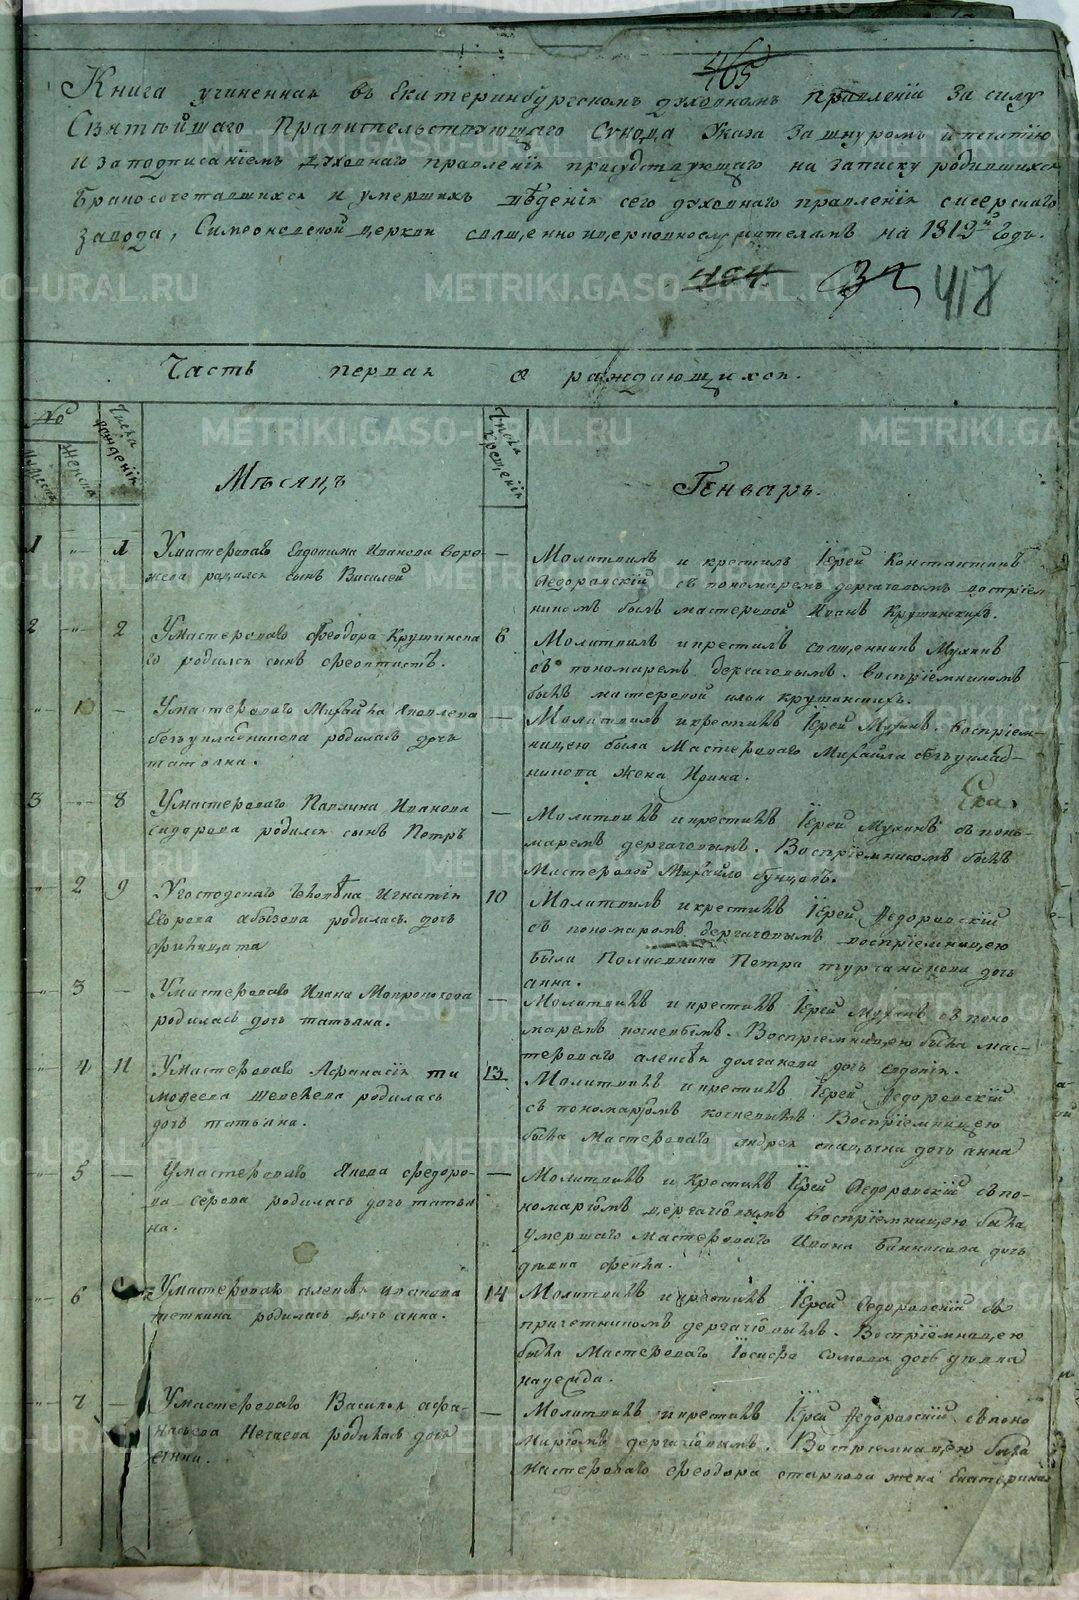 465
Книга учиненная въ Екатеринбургскомъ духовномъ правленїи за силу
Святѣйшаго Правительствующаго Сѵнода Указа за шнуромъ и печатїю
и за подписанїемъ духовнаго правленїя присудствующаго на записку родившихся
бракосочетавшихся и умершихъ вѣденїя сего духовнаго правленїя сисерскаго
завода, Симеоновской церкви священноцерковнослужителамъ на й Годъ.
454 37 418
Часть первая о раждающихся.
№ Числа рожденїя Числа крещенїя
Женска
Мѣсяцъ Генварь.
1 „ 1 Умастероваго Евдокима Иванова воро-
жева родился сынъ Василей
— Молитвилъ и крестилъ Їерей Константинъ
Ѳедоровскїй съ пономаремъ дергачовымъ воспрїем
никомъ былъ мастеровой Иванъ Крушинскихъ.
2 „ 2 Умастероваго Феодора Крушинска
го родился сынъ Феоктистъ.
6 Молитвилъ и крестилъ священникъ Мухинъ
съ пономаремъ дергачовымъ. воспрїемникомъ
былъ мастеровой илья крушинскихъ.
„ 1 Умастероваго Михайла Яковлева
безъукладникова родилась дочь
татьяна.
— Молитвилъ и крестилъ Їерей Мухинъ. воспрїем-
ницею была Мастероваго Михайла безъуклад-
никова жена Ирина.
3 „ 8 Умастероваго Павлина Иванова
сидорова родился сынъ Петръ
— Молитвилъ и крестилъ Їерей Мухинъ съ поно-
маремъ дергачовымъ. Воспрїемникомъ былъ
Мастеровой Михайло бунцовъ.
„ 2 9 Угосподскаго человѣка Игнатїя
Егорова абызова родилась дочь
фитцата
10 Молитвилъ и крестилъ Їерей Ѳедоровскїй
съ пономаромъ дергачовымъ воспрїемницею
была Полисовщика Петра турчанинова дочь
анна.
„ 3 — Умастероваго Ивана Мокроносова
родилась дочь татьяна.
— Молитвилъ и крестилъ Їерей Мухинъ съ поно
маремъ косневымъ. Воспрїемницею была мас-
тероваго алексѣя долганова дочь евдокїя.
„ 4 11 Умастероваго Афанасїя ти
мофеева шевелева родилась
дочь татьяна.
13 Молитвилъ и крестилъ Їерей Ѳедоровскїй
съ пономарїомъ косневымъ Воспрїемницею
была Мастероваго андрея спицына дочь анна
„ 5 — Умастероваго Якова федоро-
ва Серова родилась дочь татья
на.
— Молитвилъ и крестилъ Їерей Ѳедоровскїй съ по-
номарїомъ дергачїовымъ воспрїемницею была
умершаго мастероваго Ивана банникова дочь
дѣвка фекла.
„ 6 Умастероваго алексѣя иванова
щеткина родилась дочь анна.
14 Молитвилъ и крестилъ Їерей Ѳедоровскїй съ
причетникомъ дергачїовымъ. Воспрїемницею
была Мастероваго Їосифа сомова дочь дѣвка
надежда.
„ 7 — Умастероваго Василья афа-
насьева Нечаева родилась дочь
— Молитвилъ и крестилъ Їерей Ѳедоровскїй съ поно
марїомъ дергачїовымъ. Воспрїемницею была
мастероваго феодора старкова жена Екатерина
METRIKI.GASO-URAL.RU